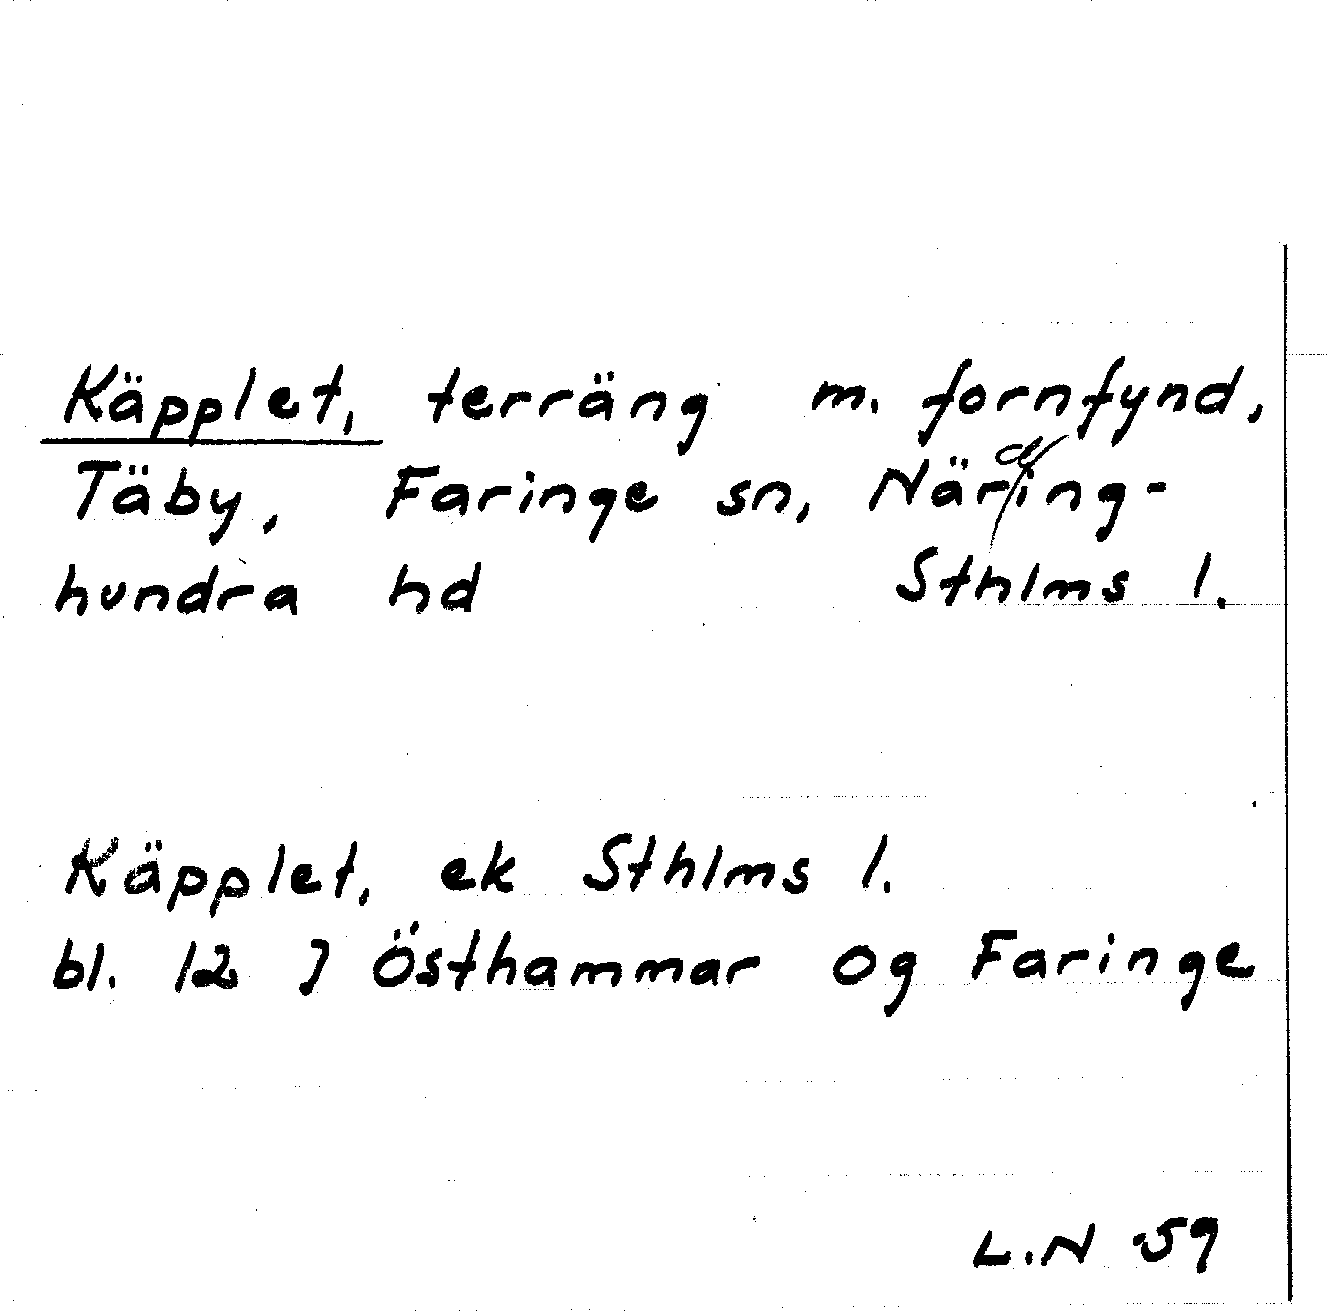 Käpplet, terräng m. fornfynd,
Täby, Faringe sn, Näring-
hundra hd Sthlms l.
Käpplet, ek Sthlms l.
bl. 12 J Östhammar og Faringe
L.N -59